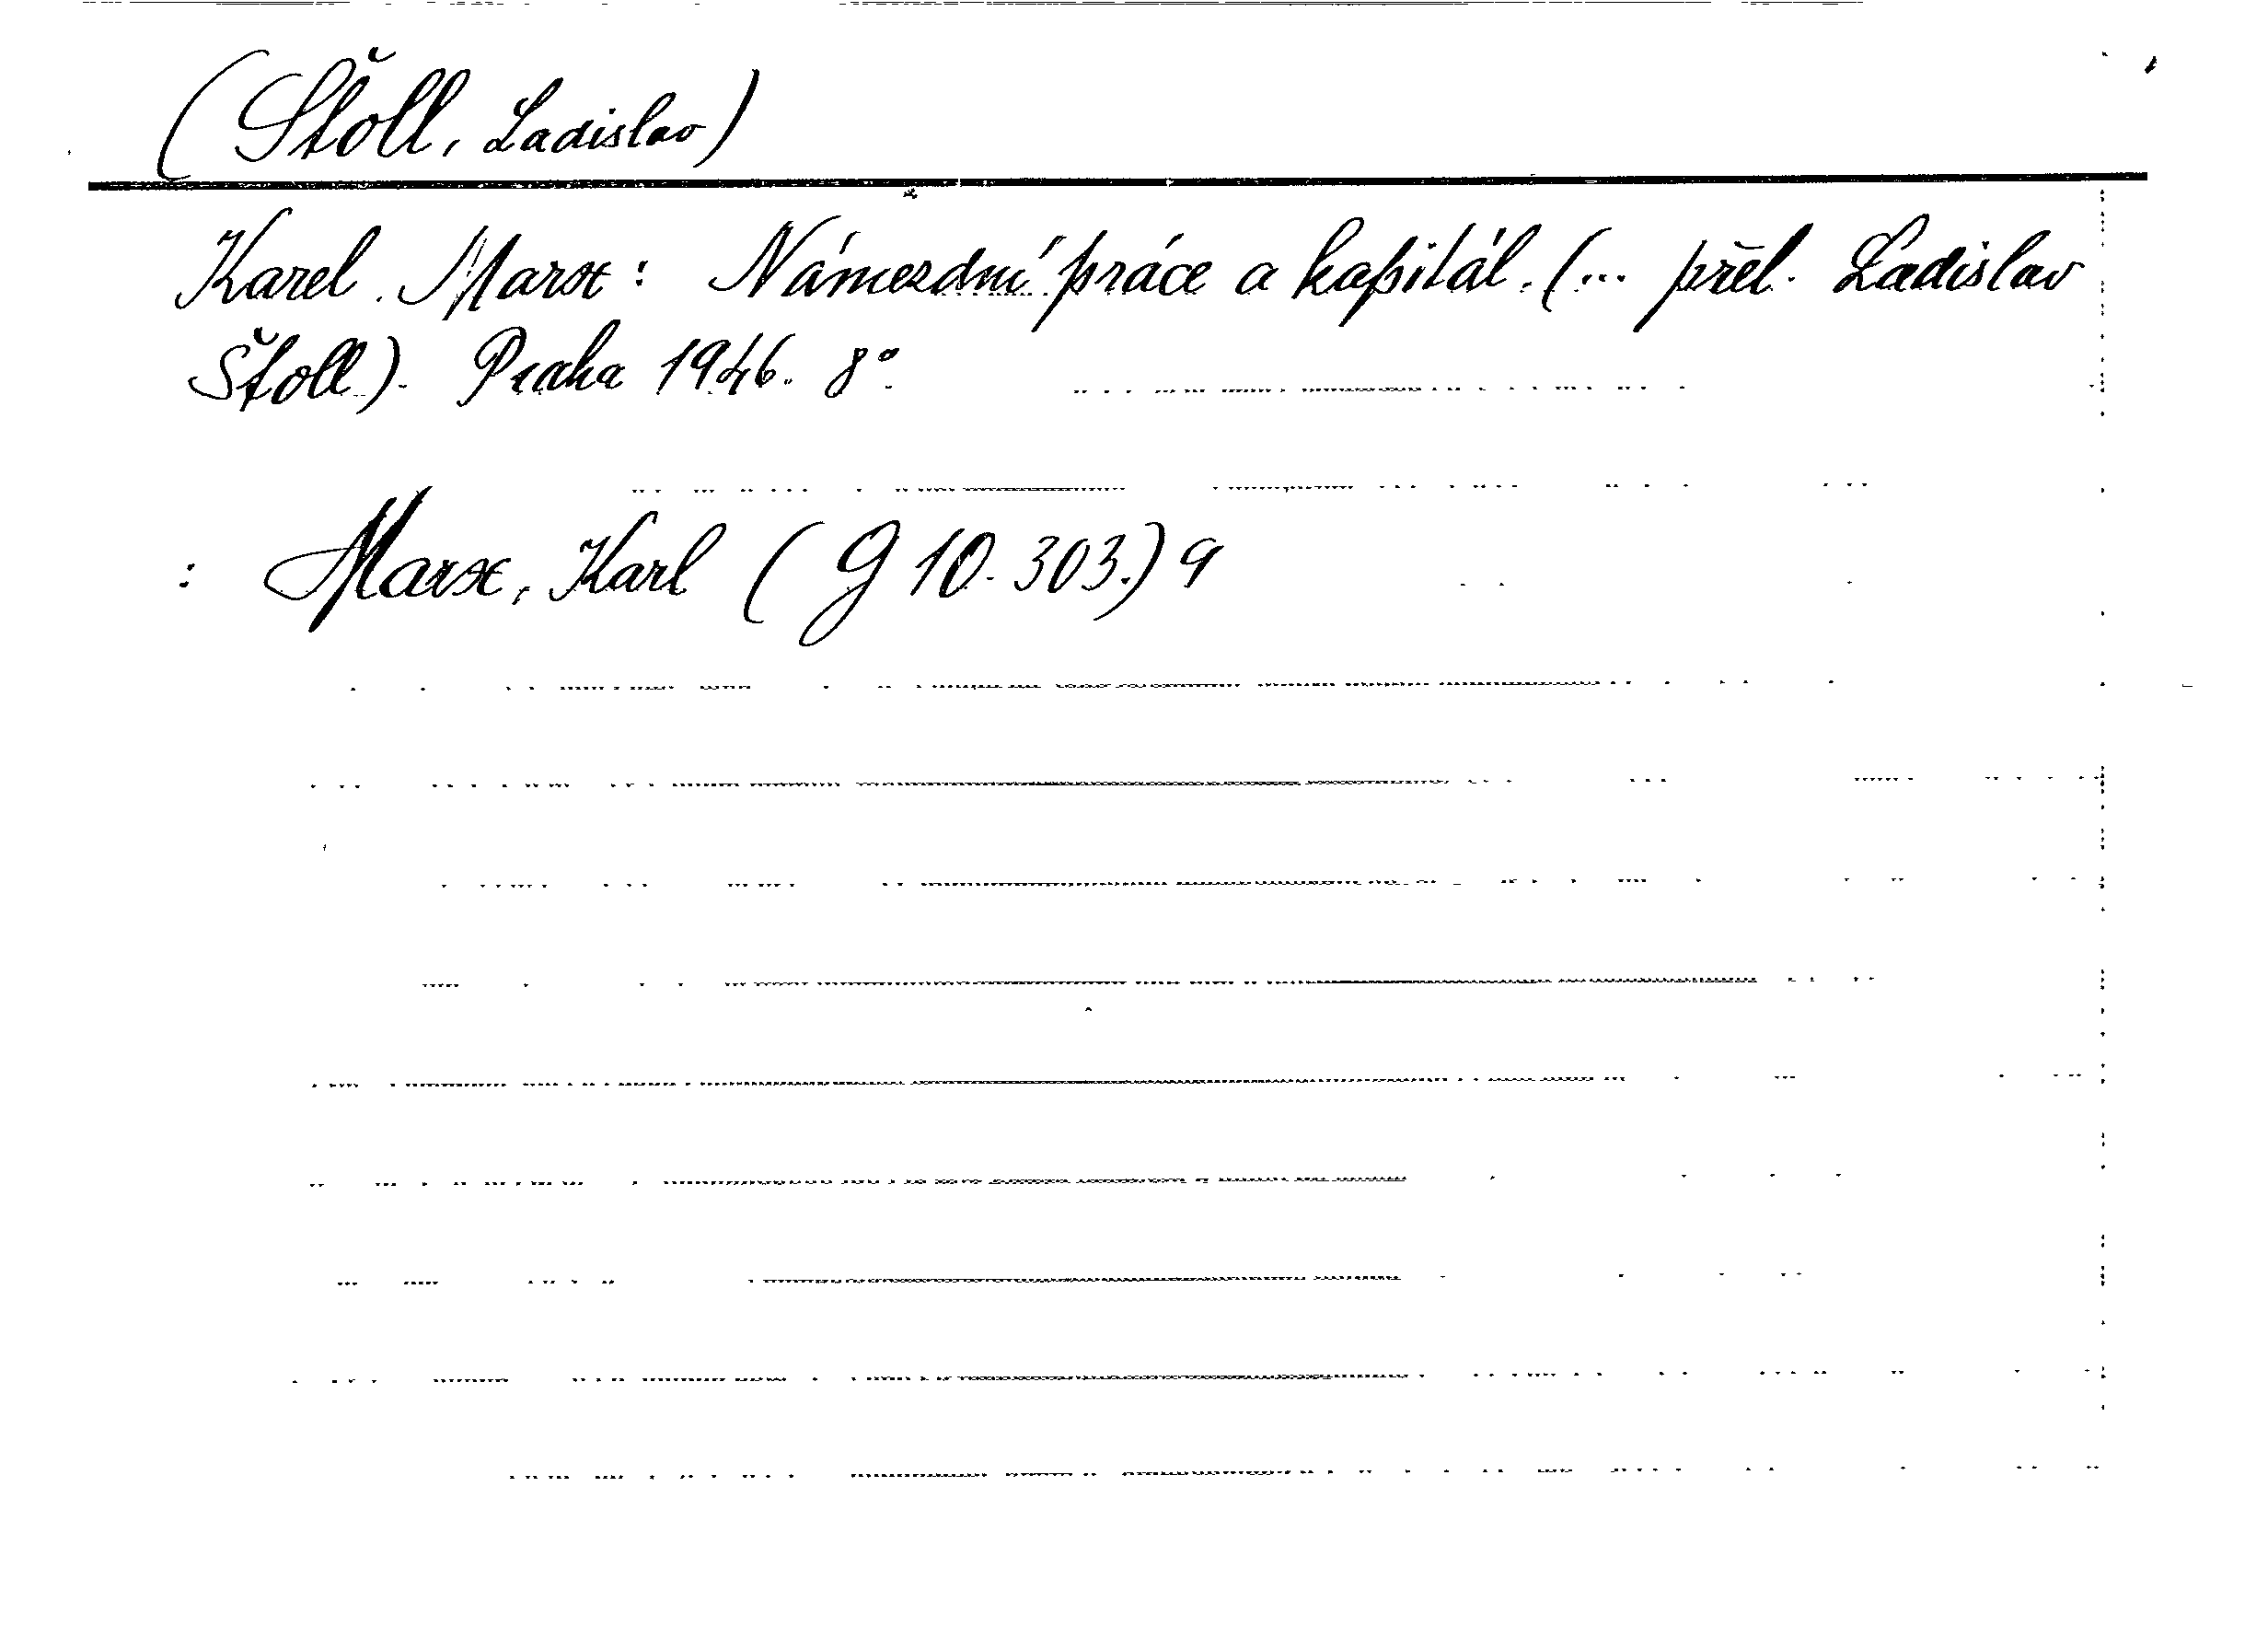 (Štoll, Ladislav)
Karel Marx: Námezdní práce a kapitál. (... přel. Ladislav
Štoll). Praha 1946. 8°.
: Marx, Karl (G 10.303.) a